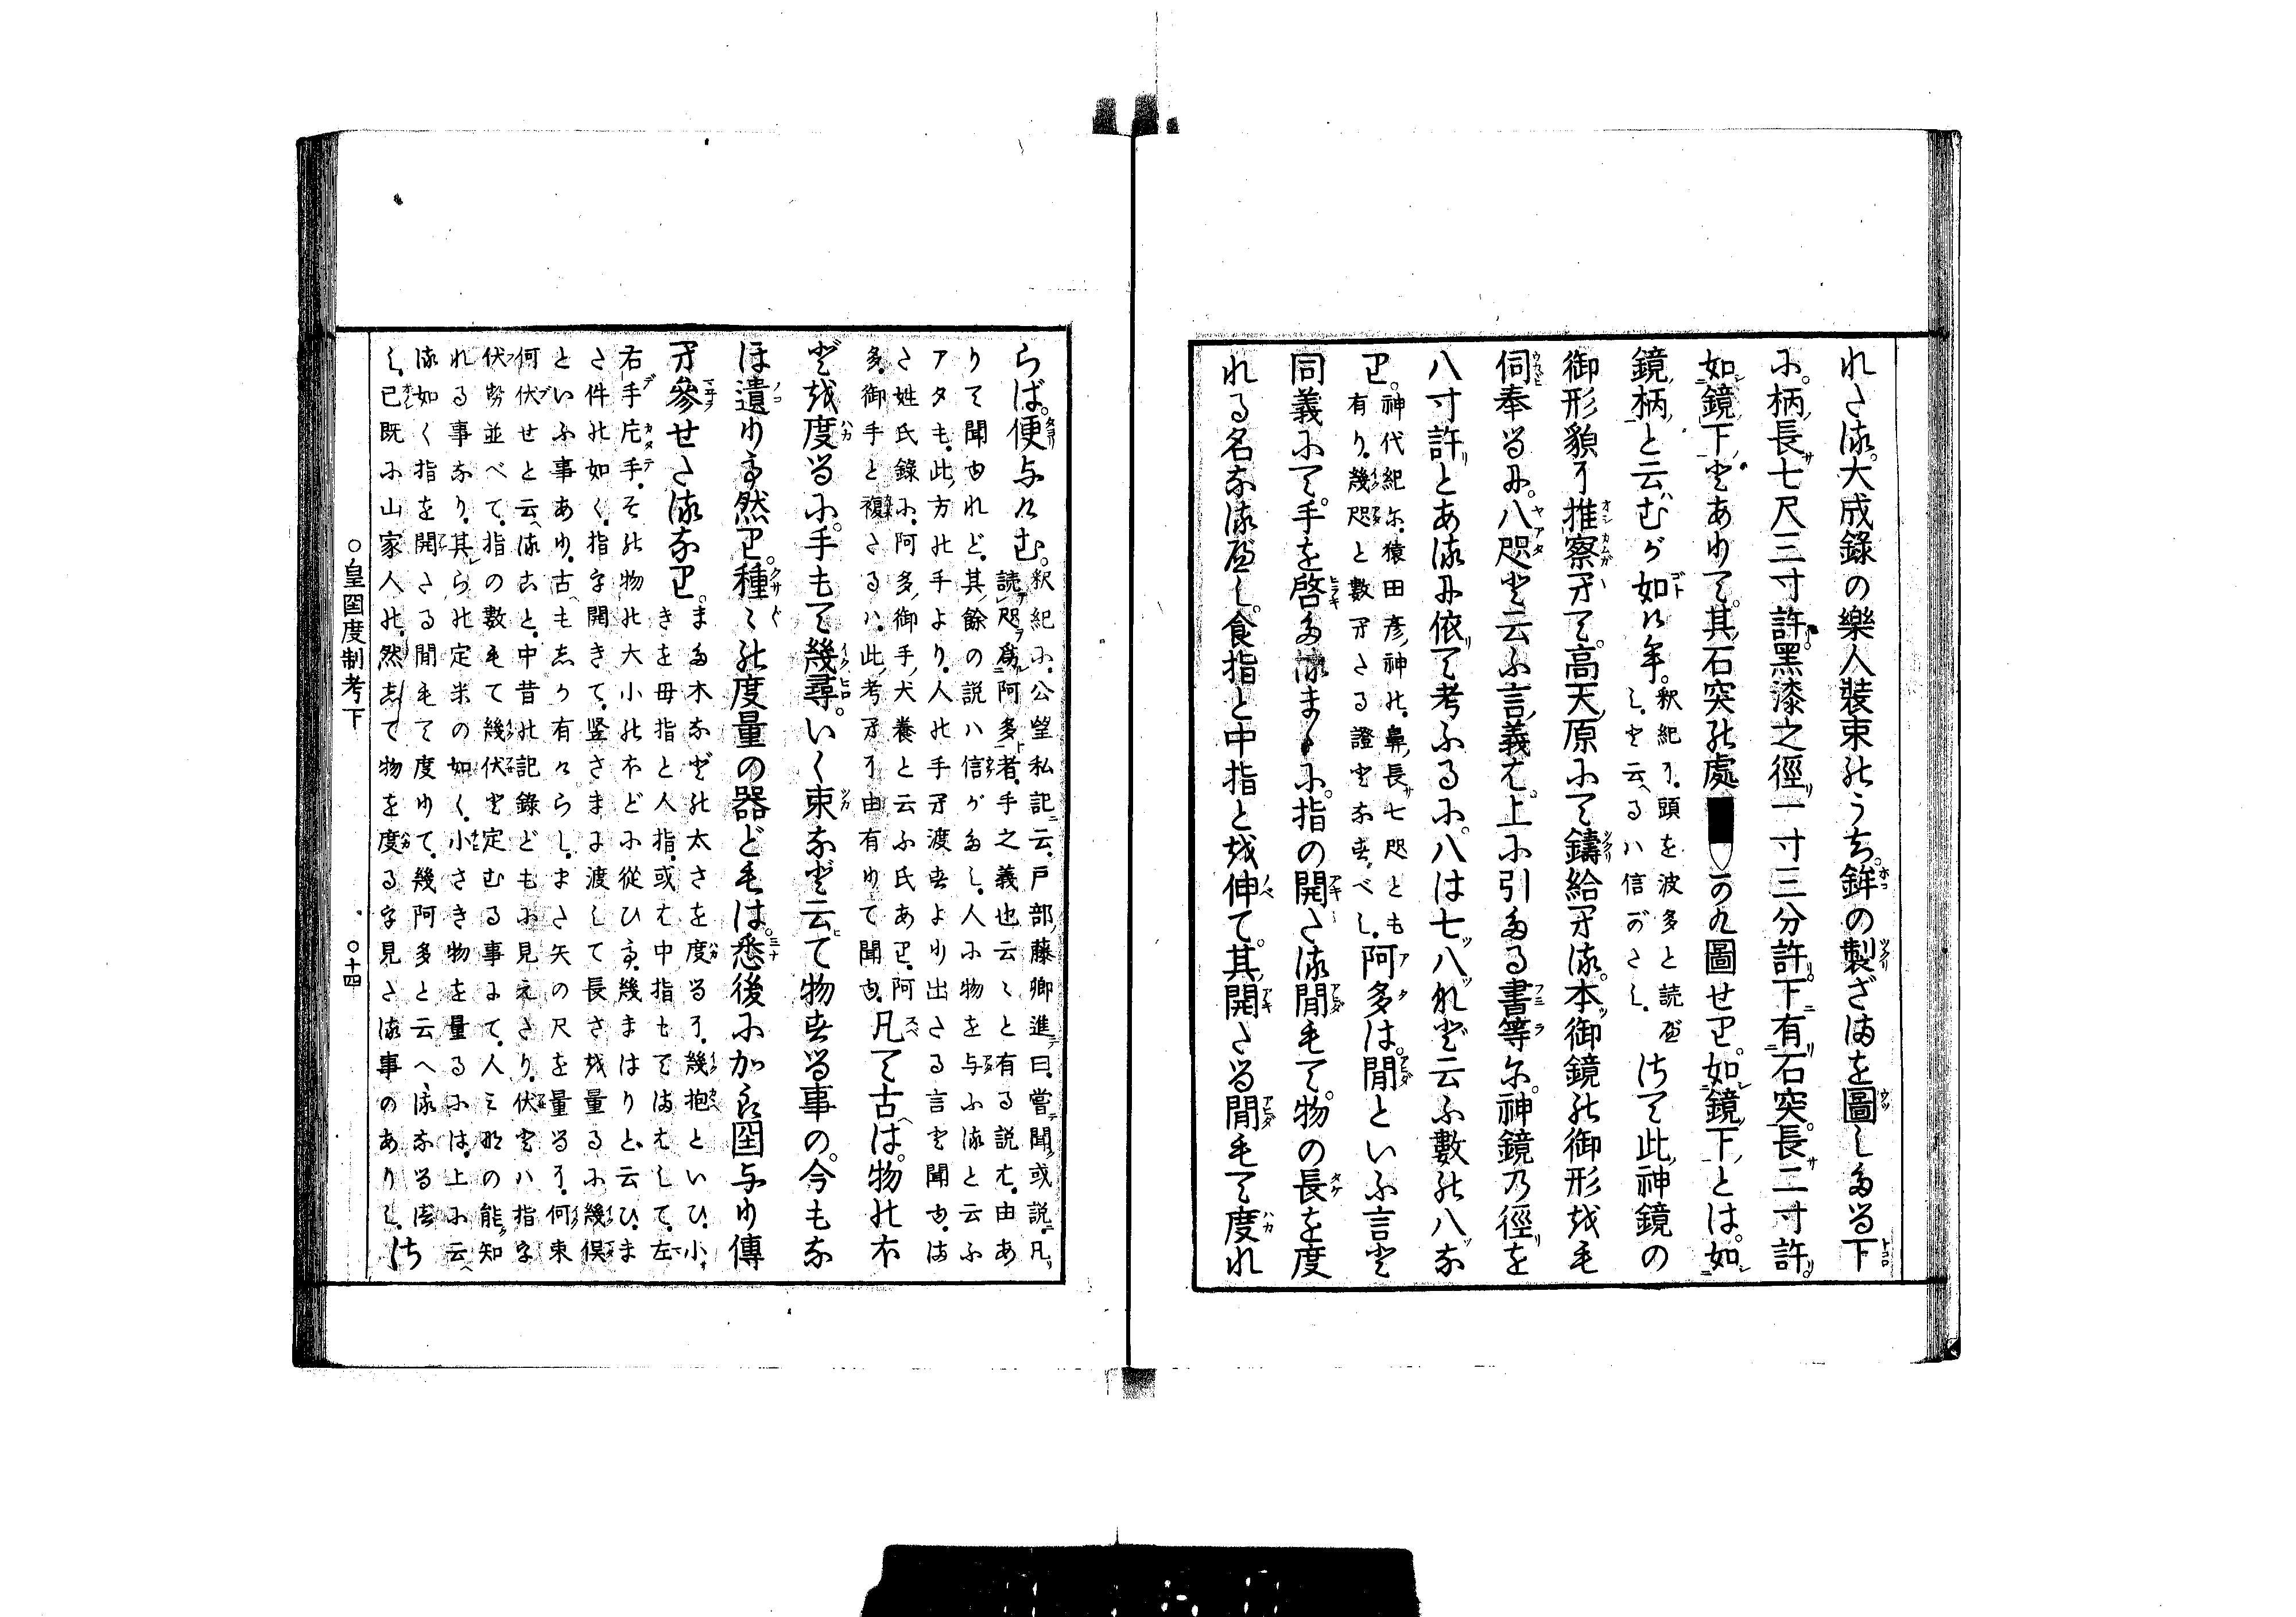 れたる。大成錄の樂人裝束のうち。鉾の製ざまを圖したる下
に。柄長七尺三寸許。黑漆之徑一寸三分許。下有石突。長二寸許。
如鏡下。とありて。其石突の處かく圖せり。如鏡下とは。如
鏡柄と云むが如けむ。
釈紀に。頭を波多と読べ
し。と云るハ信がたし。
さて此神鏡の
御形貌に推察りて。高天原にて鑄給へる。本御鏡の御形をも
伺奉るに。八咫と云ふ言義は。上に引たる書等に。神鏡乃徑を
八寸許とあるに依て考ふるに。八は七ッ八ッなど云ふ數の八な
り。
神代紀に。猿田彦神の。鼻長七咫とも
有り。幾咫と數へたる證とすべし。
阿多は。間といふ言と
同義にて。手を啓たるまゝに。指の開たる間もて。物の長を度
れる名なるべし。食指と中指とを伸て。其開たる間もて度れ
らば。便よけむ。
釈紀に。公望私記云。戸部藤卿進曰。嘗聞或説。凡
読咫爲阿多者。手之義也云々と有る説は。由あ
りて聞ゆれど。其餘の説ハ信がたし。人に物を与ふると云ふ
アタも。此方の手より。人の手へ渡すより出たる言と聞ゆ。ま
た姓氏錄に。阿多御手犬養と云ふ氏あり。阿
多御手と複たるハ。此考へに由有りて聞ゆ。
凡て古は。物のほ
どを度るに。手もて幾尋。いく束など云て物する事の。今もな
ほ遺りき。然り。種々の度量の器どもは。悉後に加良国より傳
へ參せたるなり。
また木などの太さを度るに。幾抱といひ。小
きを母指と人指。或は中指もてまはして。左
右手片手。その物の大小のほどに從ひて。幾まはりと云ひ。ま
た件の如く。指を開きて。竪さまに渡して長さを量るに幾俣
といふ事あり。古もしか有けらし。また矢の尺を量るに。何束
何伏せと云ること。中昔の記錄どもに見えたり。伏とハ指を
伏勢並べて。指の數もて幾伏と定むる事にて。人みなの能知
れる事なり。其らの定めの如く。小さき物を量るには。上に云
る如く指を開たる間もて度りて。幾阿多と云へるなるべ
し。已既に山家人の。然して物を度るを見たる事のありし。
さ
○皇国度制考下
○十四